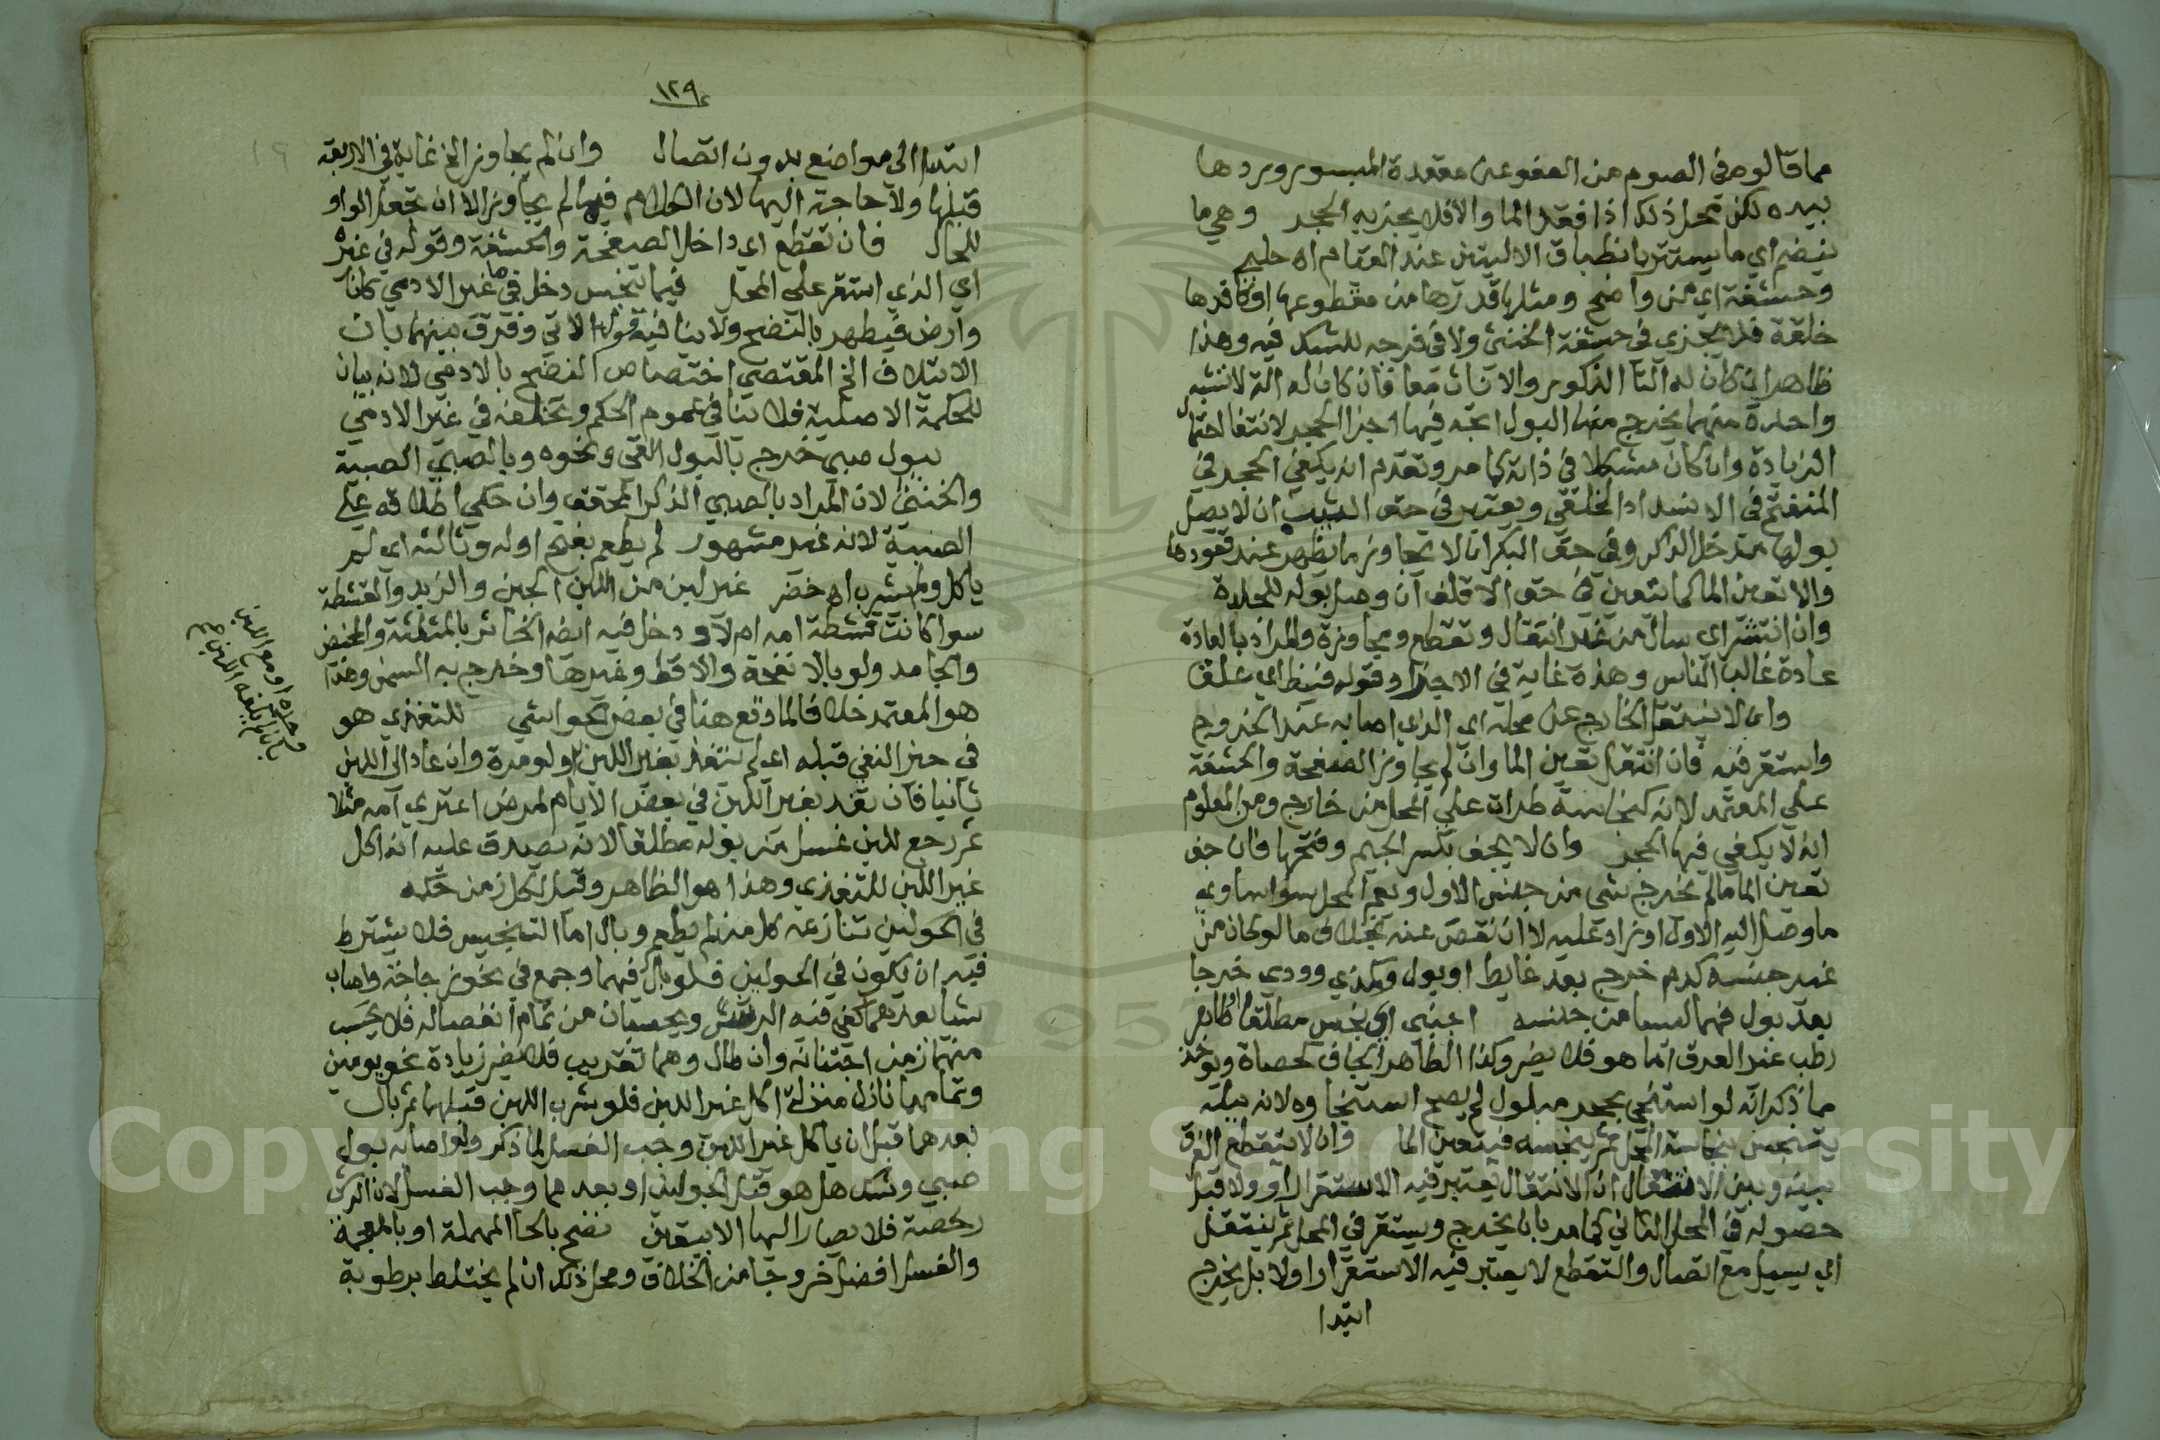 مما قالوه في الصوم من العفو عن مقعدة المبسور وردها
بيده لكن محل ذلك اذا فقد الماء والا فلا يجزيه الحجر وهي ما
ينضم اي ما يستتر بانطباق الاليتين عند القيام اه حلبي
وحشفة اي من واضح ومثلها قدرها من مقطوعها او فاقدها
خلقة فلا يجزي في حشفة الخنثى ولا في فرجه للشك فيه وهذا
ظاهر ان كان له آلتا الذكور والاناث معا فان كان له آلة لا تشبه
واحدة منهما يخرج منها البول اتجه فيها اجزا الحجر لانتفا احتمال
الزيادة وان كان مشكلا في ذاته كما مر وتقدم انه يكفي الحجر في
المنفتح في الانسداد الخلقي ويعتبر في حق الثيب ان لا يصل
بولها مدخل الذكر وفي حق البكر ان لا تجاوز ما يظهر عند قعودها
والا تعين الماء كما يتعين في حق الاقلف ان وصل بوله للجلدة
وان انتشر اي سال من غير انتقال وتقطع ومجاوزة والمراد بالعادة
عادة غالب الناس وهذه غاية في الاجزا وقوله فينظ اي علق
وان لا ينتقل الخارج عن محله اي الذي اصابه عند الخروج
واستقر فيه فان انتقل تعين الماء وان لم يجاوز الصفحة والحشفة
على المعتمد لانه كنجاسة طرات على المحل من خارج ومن المعلوم
انه لا يكفي فيها الحجر وان لا يجف بكسر الجيم وفتحها فان جف
تعين الماء ما لم يخرج شي من جنس الاول ويعم المحل سواء ساوى
ما وصل اليه الاول او زاد عليه لا ان نقص عنه بخلاف ما لو كان من
غير جنسه كدم خرج بعد غايط او بول وكمذي وودي خرجا
بعد بول فهما ليسا من جنسه اجنبي اي نجس مطلقا او طاهر
رطب غير العرق اما هو فلا يضر وكذا الطاهر الجاف كحصاة ويوخذ
مما ذكر انه لو استنجى بحجر مبلول لم يصح استنجاوه لانه ببلله
يتنجس بنجاسة المحل ثم ينجسه فيتعين الماء وان لا يتقطع الفرق
بينه وبين الانتقال ان الانتقال يعتبر فيه الاستقرار اولا قبل
حصوله في المحل الثاني كما مر بان يخرج ويستقر في المحل ثم ينتقل
اي يسيل مع اتصال والتقطع لا يعتبر فيه الاستقرار اولا بل يخرج
ابتدا
١٢٩
ابتدا الى مواضع بدون اتصال وان لم يجاوز الخ غاية في الاربعة
قبلها ولا حاجة اليها لان الكلام فيما لم يجاوز الا ان تجعل الواو
للحال فان تقطع اي داخل الصفحة والحشفة وقوله في غيره
اي الذي استقر على المحل فيما تنجس دخل في ما غير الادمي كاناء
وارض فيطهر بالنضح ولا ينافيه قوله الاتي وفرق بينهما بان
الائتلاف الخ المقتضي اختصاص النضح بالادمي لانه بيان
للحكمة الاصلية فلا ينافي عموم الحكم وتخلفه في غير الادمي
ببول صبي خرج بالبول القي ونحوه وبالصبي الصبية
والخنثى لان المراد بالصبي الذكر المحقق وان حكي اطلاقه على
الصبية لانه غير مشهور لم يطعم بفتح اوله وثالثه اي لم
ياكل ولم يشرب اه خضر غير لبن من اللبن الجبن والزبد والقشطة
سوا كانت قشطة امه ام لا ودخل فيه ايضا الخاثر بالمثلثة والمخيض
والجامد ولو بالانفحة والاقط وغيرها وخرج به السمن وهذا
هو المعتمد خلافا لما وقع هنا في بعض الحواشي للتغذي هو
في حيز النفي قبله اي لم يتغذ بغير اللبن ولو مرة وان عاد الى اللبن
ثانيا فان تغذ بغير اللبن في بعض الايام لمرض اعترى امه مثلا
ثم رجع للبن غسل من بوله مطلقا لانه يصدق عليه انه اكل
غير اللبن للتغذي وهذا هو الظاهر وقيل لكل زمن حكمه
في الحولين تنازعه كل من لم يطعم وبال اما التنجيس فلا يشترط
فيه ان يكون في الحولين فلو بال فيهما وجمع في نحو زجاجة واصاب
شيا بعدهما كفى فيه الرش ويحسبان من تمام انفصاله فلا يحسب
منهما زمن اجتنانه وان طال وهما تقريب فلا تضر زيادة نحو يومين
وتمامهما نازل منزلة اكل غير اللبن فلو شرب اللبن قبلهما ثم بال
بعدهما قبل ان ياكل غير اللبن وجب الغسل لما ذكر ولو اصابه بول
صبي وشك هل هو قبل الحولين او بعدهما وجب الغسل لان الرش
رخصة فلا يصار اليها الا بيقين نضح بالحا المهملة او بالمعجمة
والغسل افضل خروجا من الخلاف ومحل ذلك ان لم يختلط برطوبة